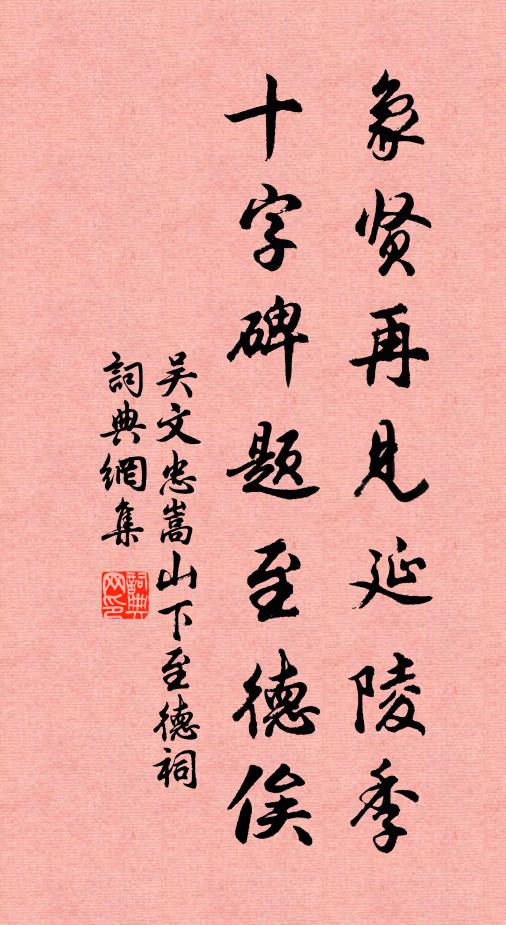 象贤再见延陵季
十字碑题至德俟
吴文忠嵩山下至德祠
詞典網集
詞典网印